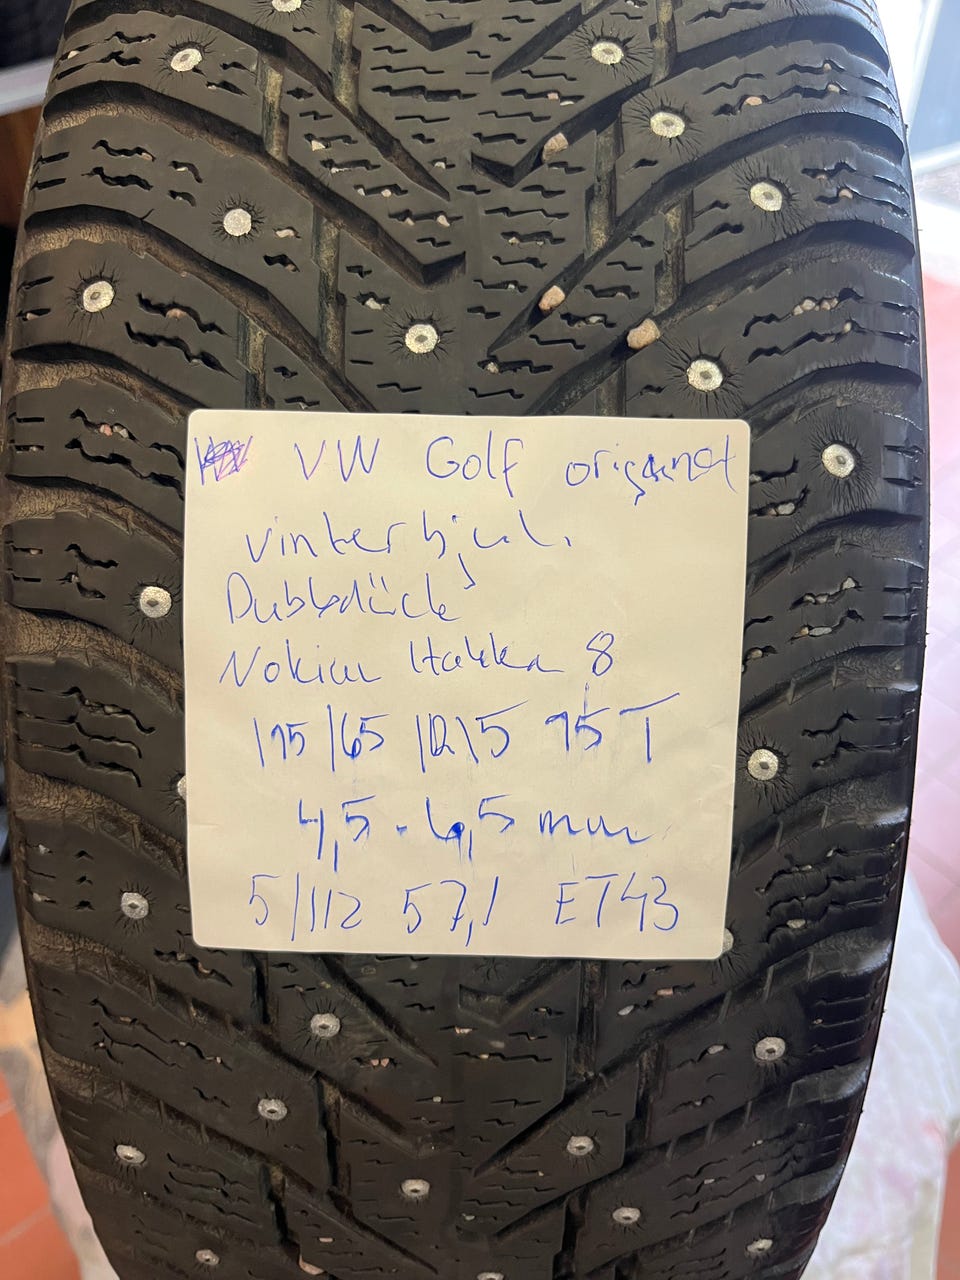 VW Golf original
vinterhjul.
Dubbdäck
Nokian Hakka 8
195/65/R15 95T
4,5-6,5 mm
5/112 57,1 ET43